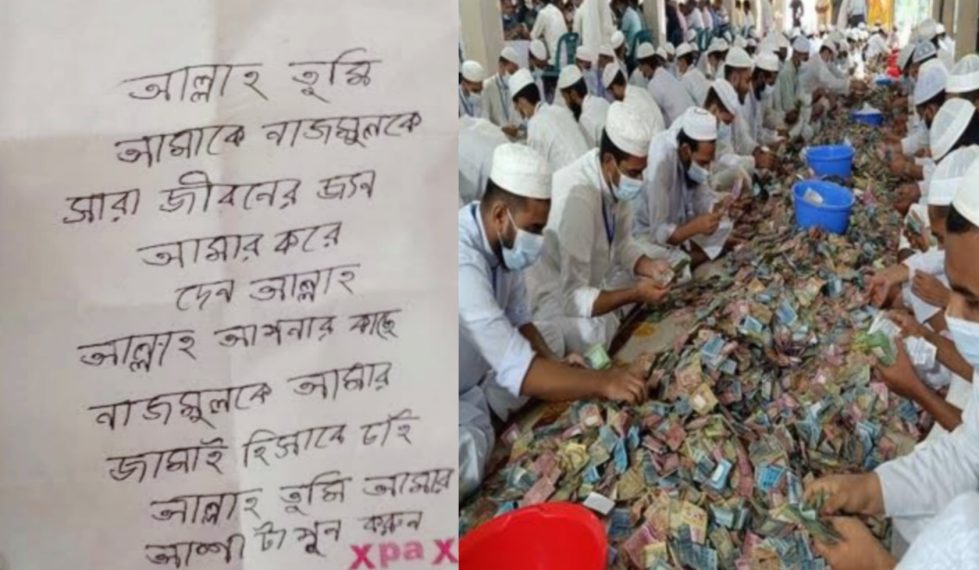 আল্লাহ তুমি
আমাকে নাজমুলকে
সারা জীবনের জন্য
আমার করে
দেন আল্লাহ
আল্লাহ আপনার কাছে
নাজমুলকে আমার
জামাই হিসাবে চাই
আল্লাহ তুমি আমার
আশা টা পুন করুন
xpax